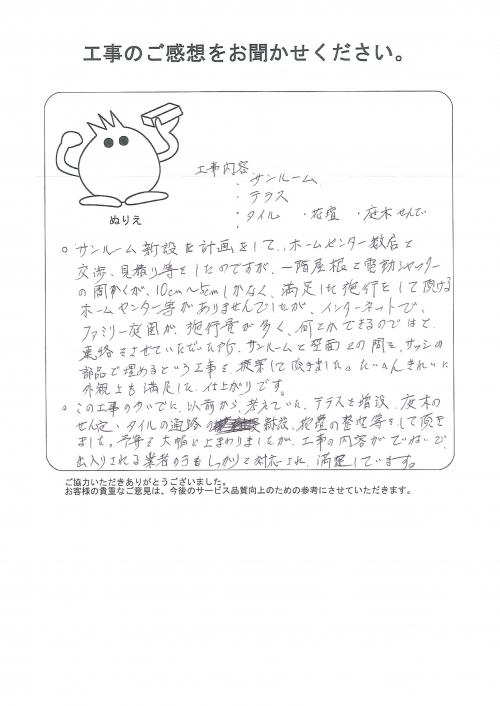 工事のご感想をお聞かせください。
ぬりえ
工事内容
・サンルーム
・テラス
・タイル ・花壇 ・庭木せんてい
○ サンルーム新設を計画をして、ホームセンター数店と
交渉、見積り等をしたのですが、一階屋根と電動シャッター
の間かくが、10cm〜5cmしかなく、満足した施行をして頂ける
ホームセンター等がありませんでしたが、インターネットで、
ファミリー庭園が、施行量が多く、何とかできるのではと、
連絡をさせていただいた所、サンルームと壁面との間を、サッシの
部品で埋めるという工事を、提案して頂きました。たいへんきれいに
外観上も満足した、仕上がりです。
○ この工事のついでに、以前から、考えていた、テラスを増設、庭木の
せん定・タイルの通路の新設、花壇の整地等をして頂き
ました。予算を大幅に上まわりましたが、工事の内容がていねいで、
出入りされる業者の方もしっかりと対応され、満足しています。
ご協力いただきありがとうございました。
お客様の貴重なご意見は、今後のサービス品質向上のための参考にさせていただきます。